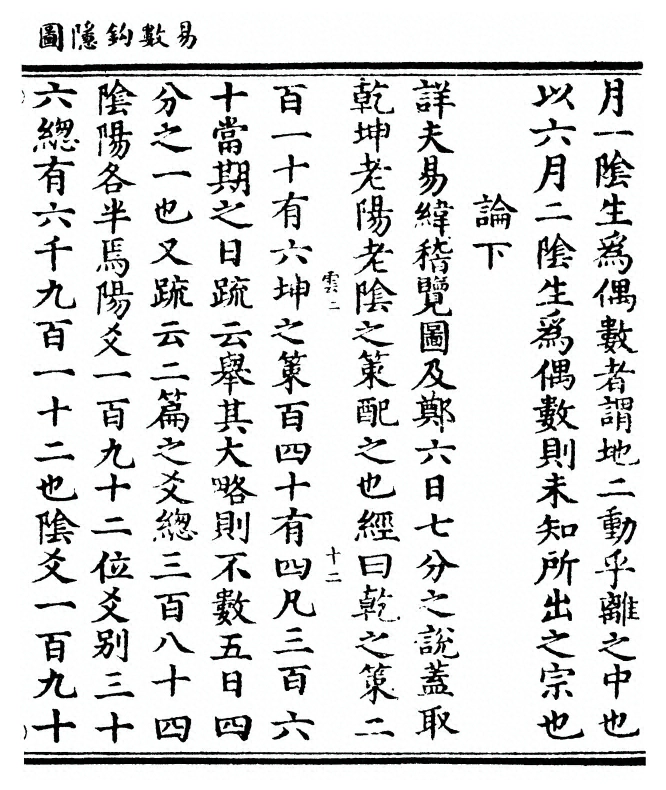 易數鈎隱圖
月一陰生爲偶數者謂地二動乎離之中也
以六月二陰生爲偶數則未知所出之宗也
論下
詳夫易緯稽覽圖及鄭六日七分之說蓋取
乾坤老陽老陰之策配之也經曰乾之策二
雲二
十二
百一十有六坤之策百四十有四凡三百六
十當期之日疏云舉其大略則不數五日四
分之一也又疏云二篇之爻總三百八十四
陰陽各半焉陽爻一百九十二位爻別三十
六總有六千九百一十二也陰爻一百九十